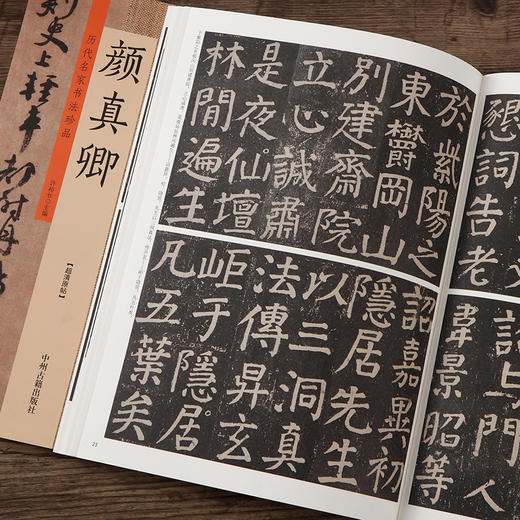 刺史上輕車都尉丹
历代名家书法珍品
颜真卿
【超清原帖】
中州古籍出版社
懇詞告老
與門人
韋景昭等
於紫陽之
東欝岡山
別建齋院
立心誠肅
是夜仙壇
林閒遍生
詔嘉異初
隱居先生
以三洞真
法傳昇玄
岠于隱居
凡五葉矣
23